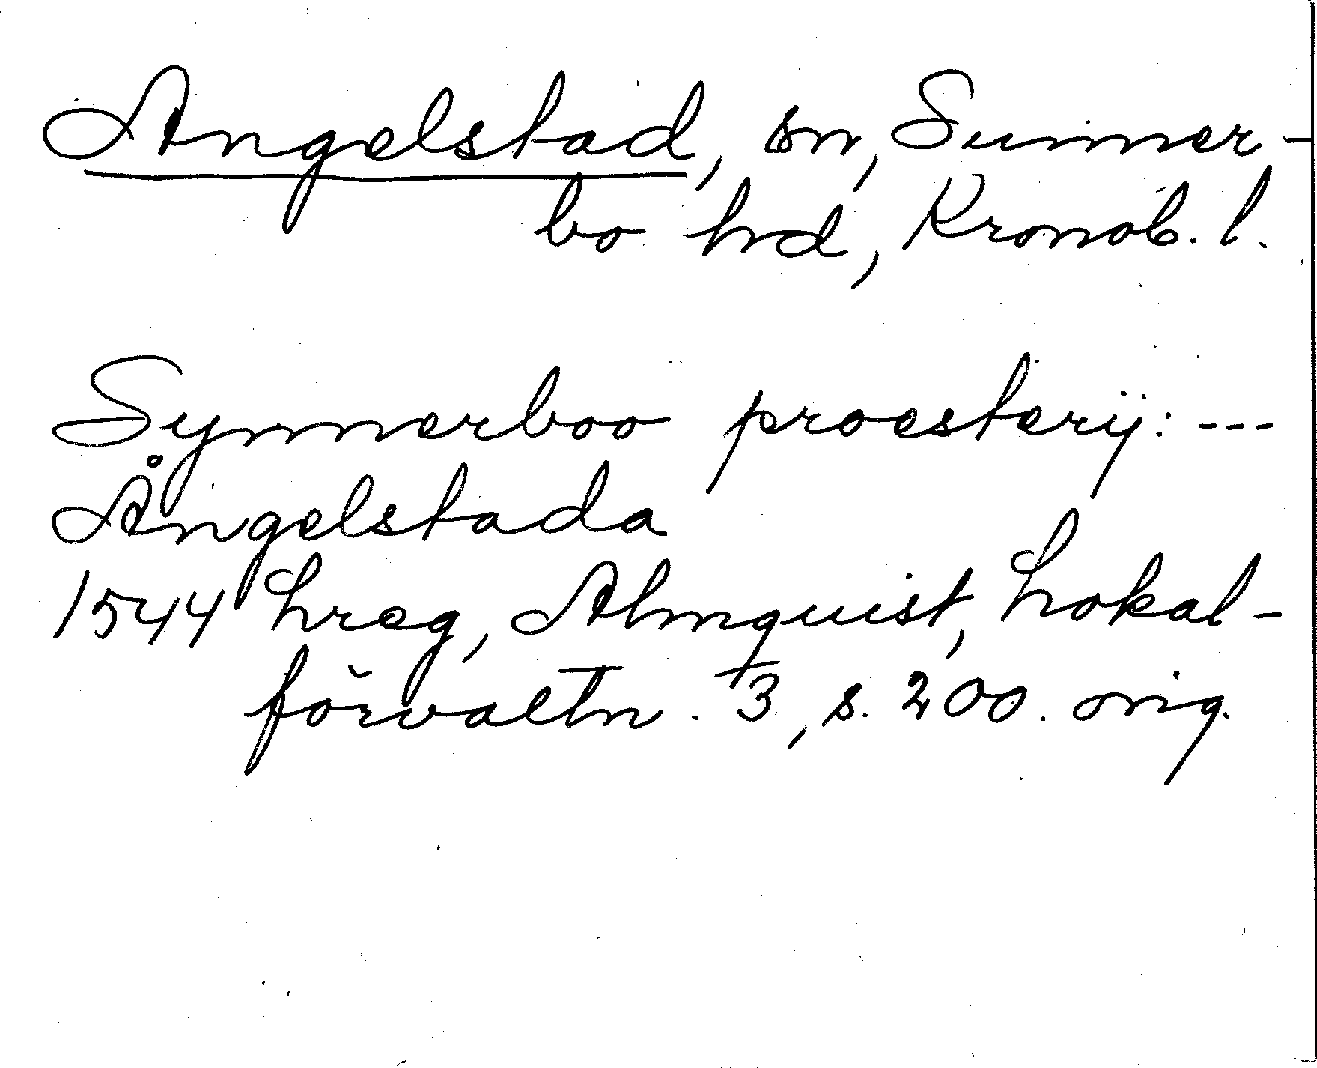 Angelstad, sn, Sunner-
bo hd, Kronob. l.
Synnerboo proesterÿ: ---
Ångelstada
1544 Lreg, Almquist, Lokal-
förvaltn. 3, s. 200. orig.